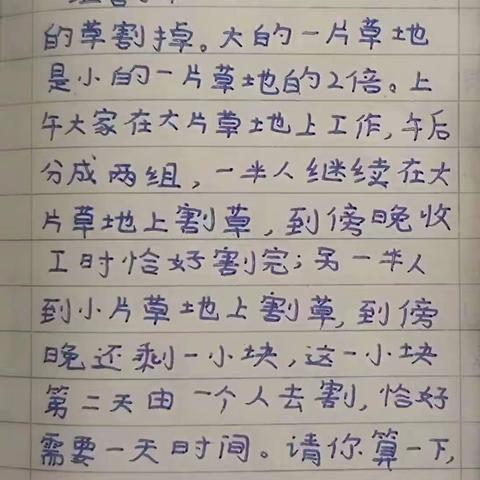 的草割掉。大的一片草地
是小的一片草地的2倍。上
午大家在大片草地上工作,午后
分成两组,一半人继续在大
片草地上割草,到傍晚收
工时恰好割完;另一半人
到小片草地上割草,到傍
晚还剩一小块,这一小块
第二天由一个人去割,恰好
需要一天时间。请你算一下,